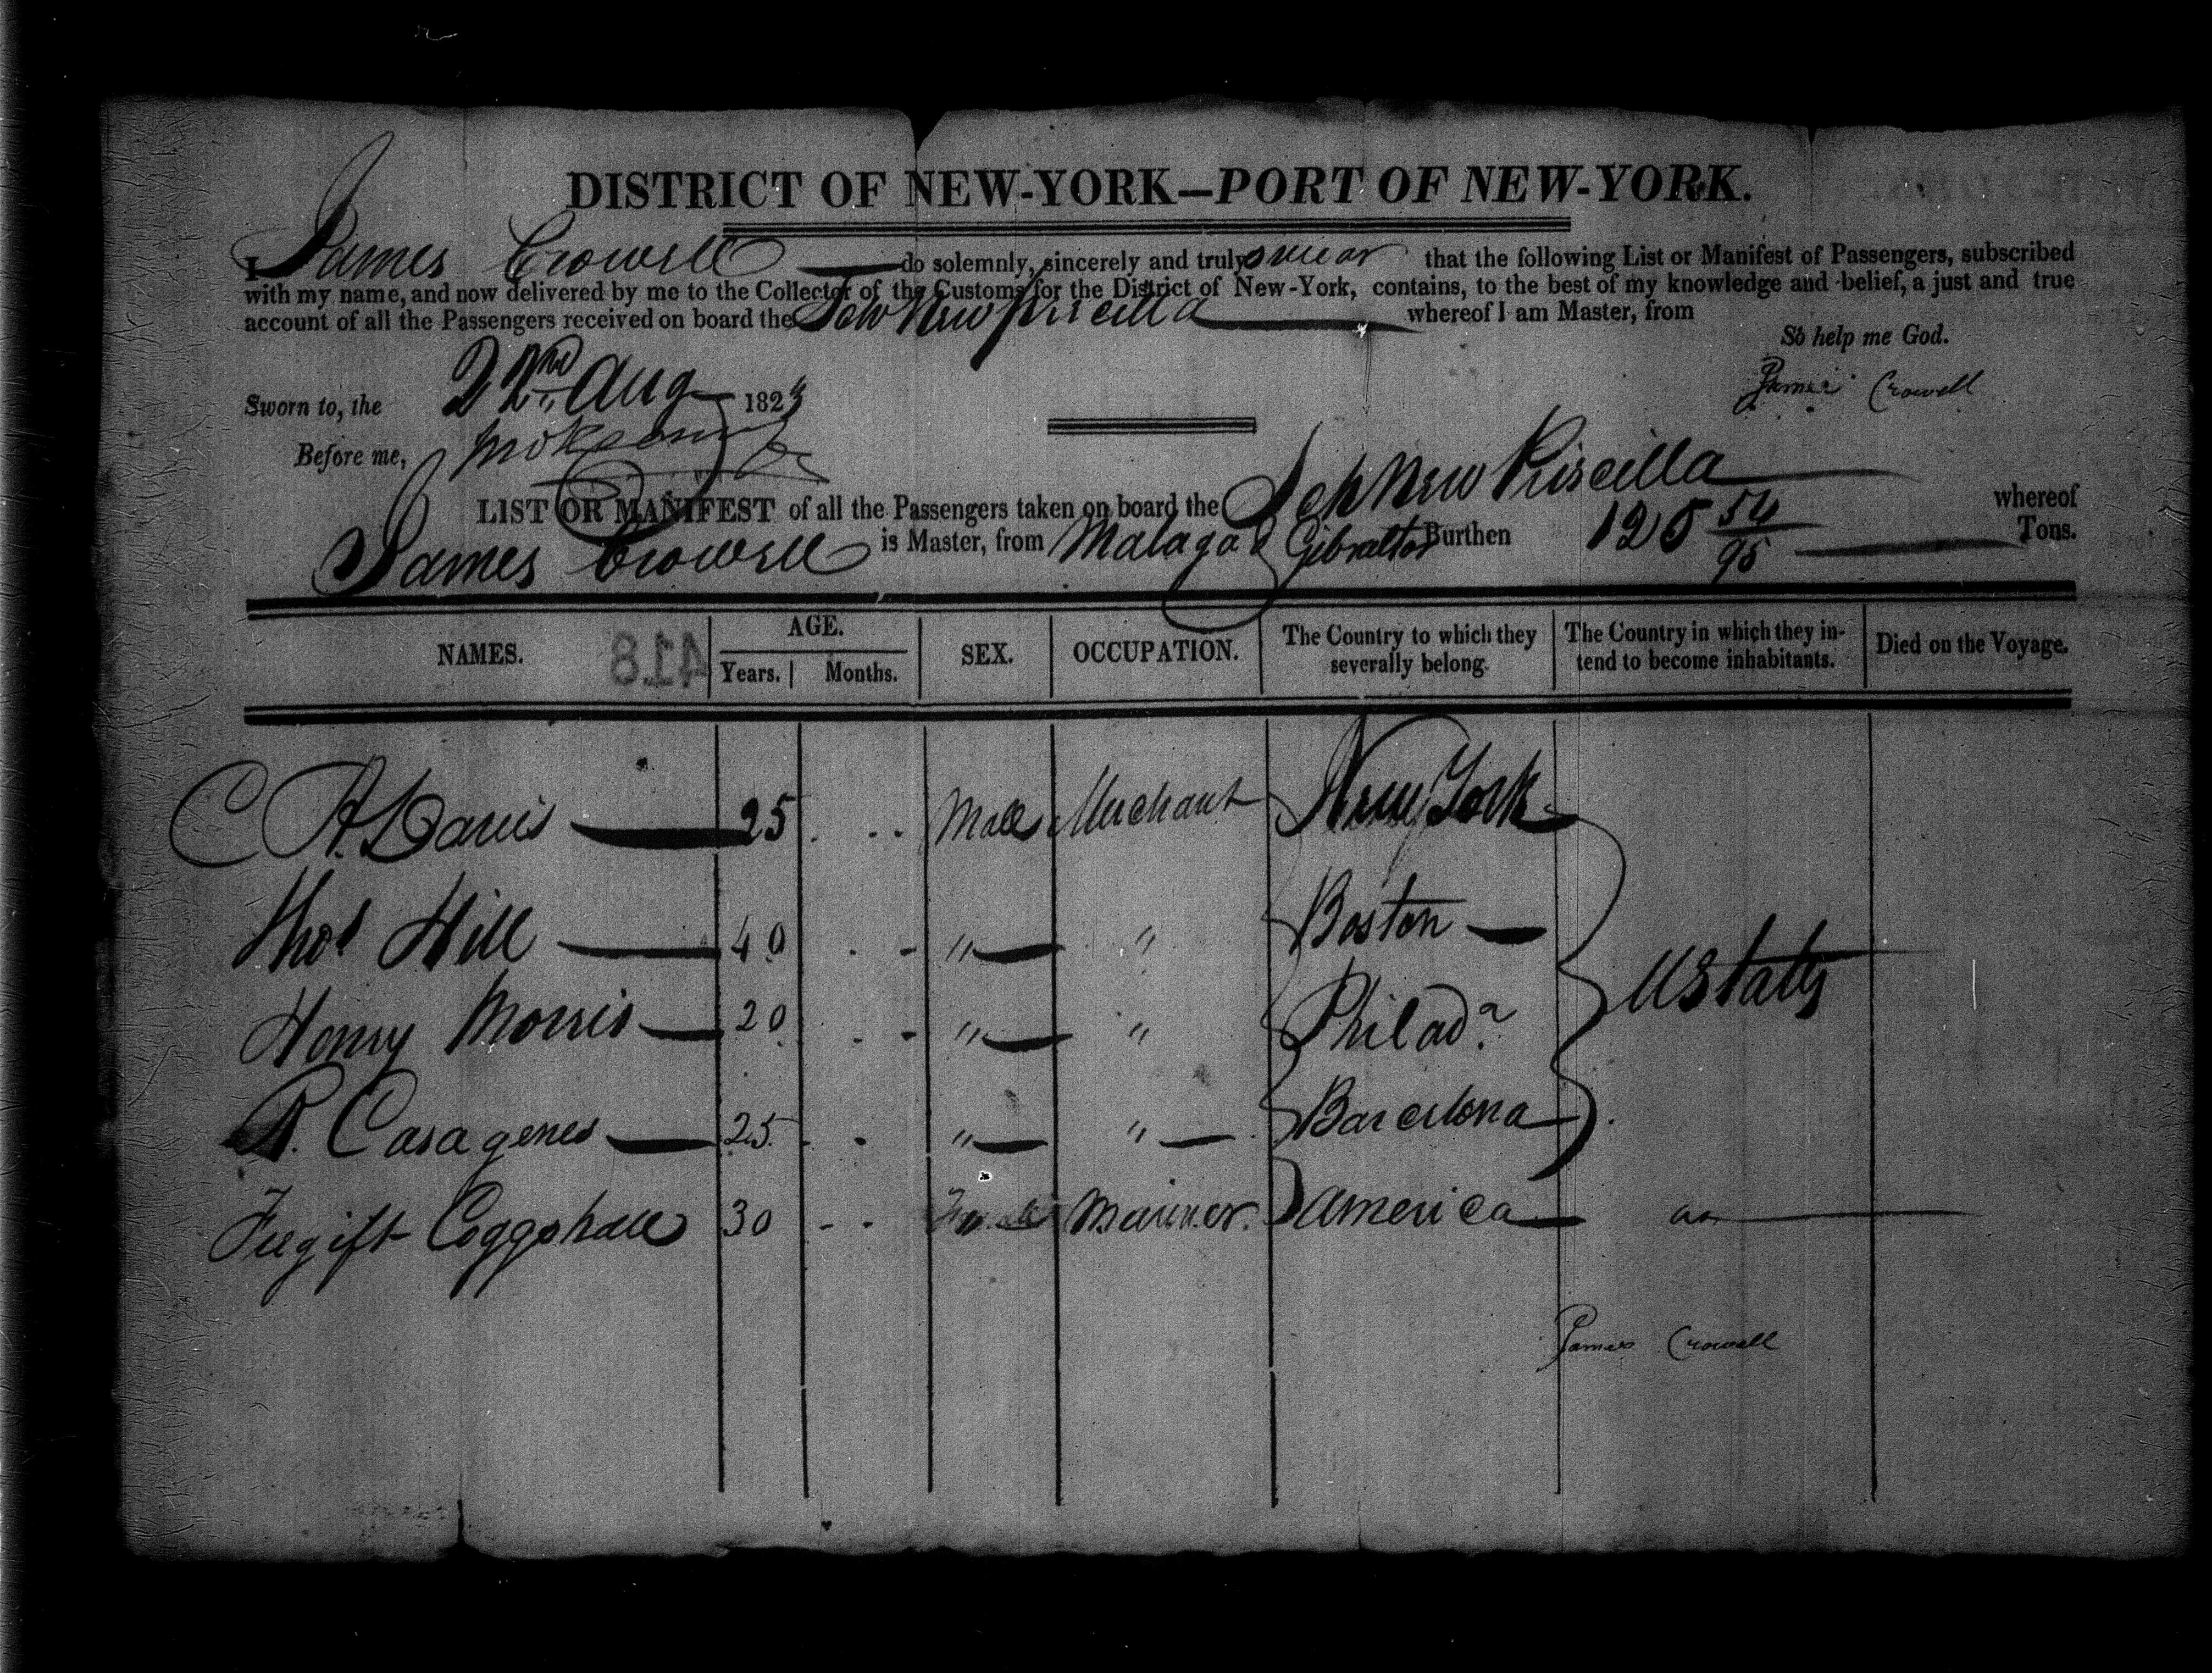 DISTRICT OF NEW-YORK—PORT OF NEW-YORK.
I James Crowell do solemnly, sincerely and truly swear that the following List or Manifest of Passengers, subscribed
with my name, and now delivered by me to the Collector of the Customs for the District of New-York, contains, to the best of my knowledge and belief, a just and true
account of all the Passengers received on board the Sch New Priscilla whereof I am Master, from
So help me God.
James Crowell
Sworn to, the 22nd Aug 1823
Before me,
LIST OR MANIFEST of all the Passengers taken on board the Sch New Priscilla whereof
James Crowell is Master, from Malaga & Gibraltar Burthen 125 54/95 Tons.
NAMES. 418 AGE. Years. Months. SEX. OCCUPATION. The Country to which they severally belong. The Country in which they intend to become inhabitants. Died on the Voyage.
C A. Davis 25 Male Merchant New York
Thos Hill 40 " " Boston
Henry Morris 20 " " Philada
UStates
P. Casagenes 25 " " Barcelona
Feegift Coggshall 30 Mariner. America
James Crowell